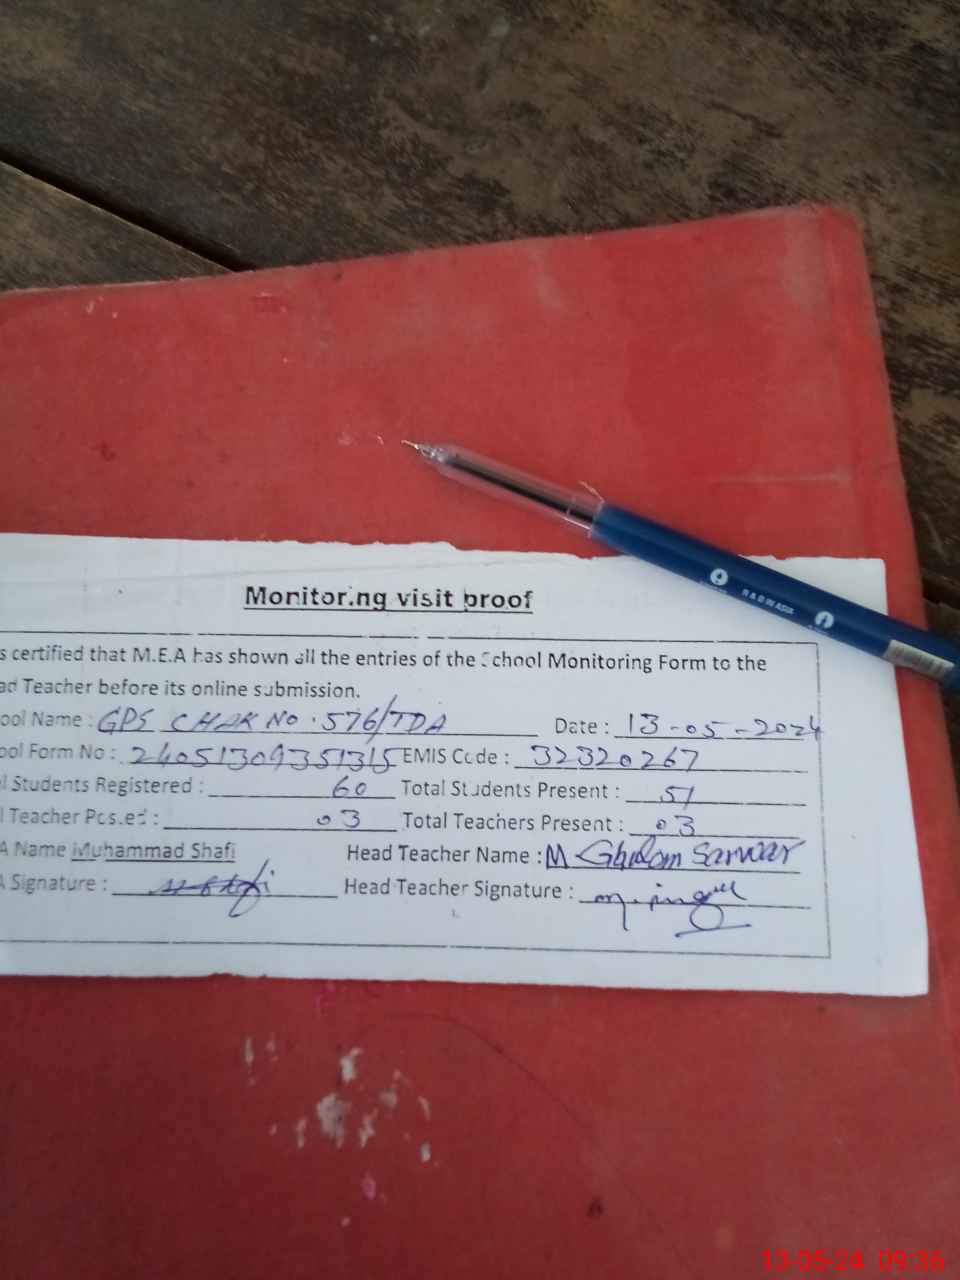 Monitoring visit proof
s certified that M.E.A has shown all the entries of the School Monitoring Form to the
ad Teacher before its online submission.
ool Name : GPS CHAK No. 576/TDA Date : 13-05-2024
ool Form No : 24051309351315 EMIS Code : 32320267
l Students Registered : 60 Total Students Present : 51
l Teacher Posted : 03 Total Teachers Present : 03
A Name Muhammad Shafi Head Teacher Name : M Ghulam Sarwar
A Signature : Head Teacher Signature :
13-05-24 09:36